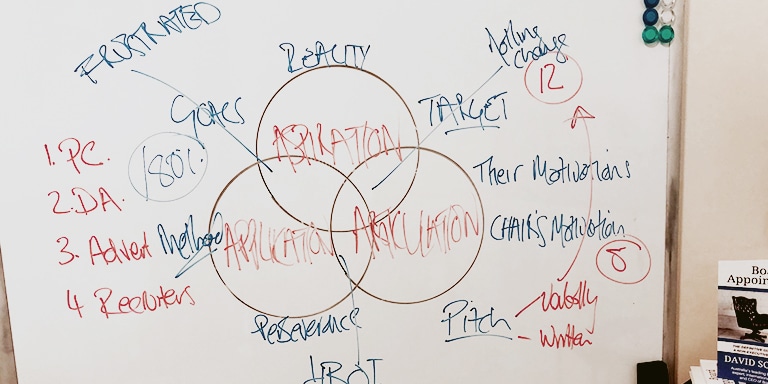 FRUSTRATED
REALITY
Nothing
Change
12
GOALS
TARGET
ASPIRATION
1. PC.
180%.
2. DA.
Their Motivations
3. Advert
Method
APPLICATION
ARTICULATION
CHAIR'S Motivation
8
4 Recruiters
Perseverance
Pitch
- Verbally
- Written
Bo
Appoin
DAVID SC